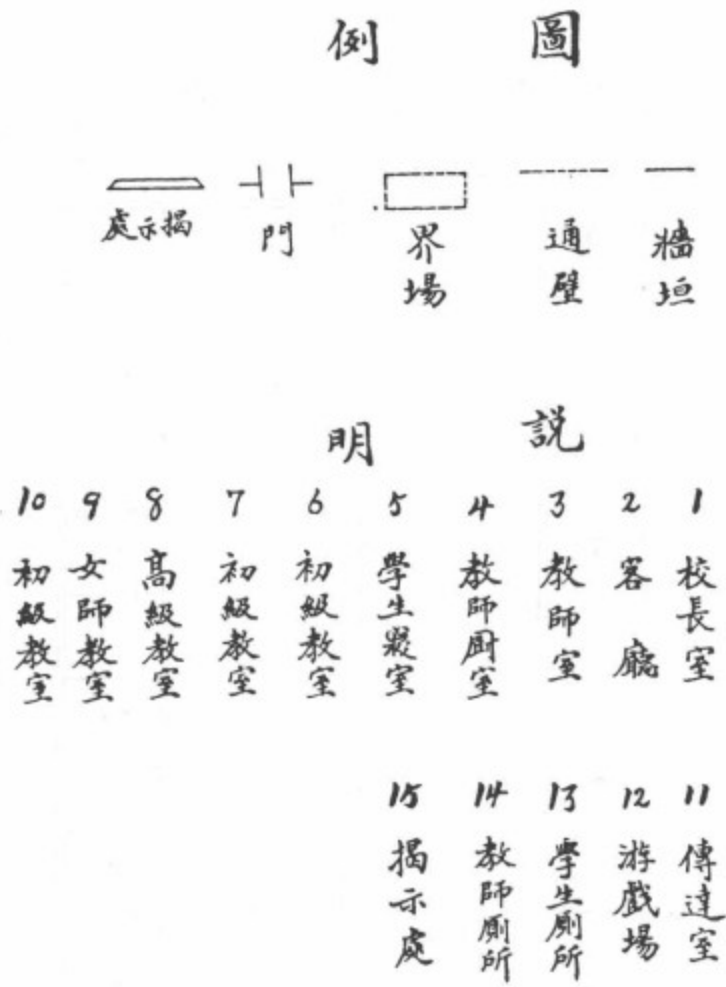 圖例
牆垣
通壁
場界
門
揭示處
説明
1 校長室
2 客廳
3 教師室
4 教師厨室
5 學生爨室
6 初級教室
7 初級教室
8 高級教室
9 女師教室
10 初級教室
11 傳達室
12 游戲場
13 學生厠所
14 教師厠所
15 揭示處